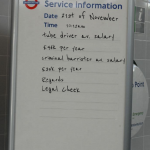 Service Information
Date 21st of November
Time
tube driver av. salary
£45k per year
criminal barrister av. salary
£30k per year
Regards
Legal Cheek
Point